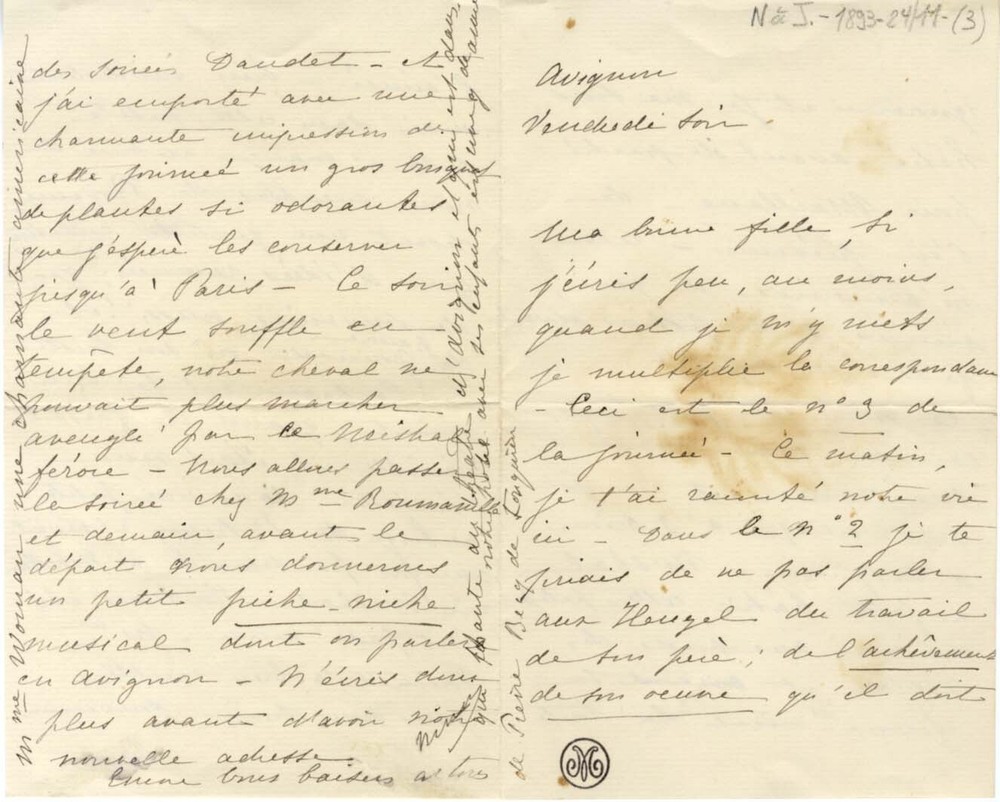 N à J. - 1893-24/11-(3)
Avignon
Vendredi soir
Ma bonne fille, si
j'écris peu, au moins,
quand je m'y mets
je multiplie la correspondance
- Ceci est le n° 3 de
la journée - Ce matin,
je t'ai raconté notre vie
ici - Dans le n° 2 je te
priais de ne pas parler
aux Heugel du travail
de ton père ; de l'achêvement
de son oeuvre qu'il doit
des soirées Daudet - et
j'ai emporté avec une
charmante impression de
cette journée un gros bouquet
de plantes si odorantes
que j'espère les conserver
jusqu'à Paris - Ce soir
le vent souffle en
tempête, notre cheval ne
pouvait plus marcher
aveuglé par le mistral
féroce - Nous allons passer
la soirée chez Mme Roumanille
et demain, avant le
départ nous donnerons
un petit piche-niche
musical dont on parlera
en Avignon - N'écris donc
plus avant d'avoir notre
nouvelle adresse.
Encore bons baisers à tous
Ninon
Mme Woman une charmante américaine
qui chante au théâtre d'Avignon et qui est dans
notre hôtel avec ses enfants est une gde amie
de Pierre Berg de Jonquière
M